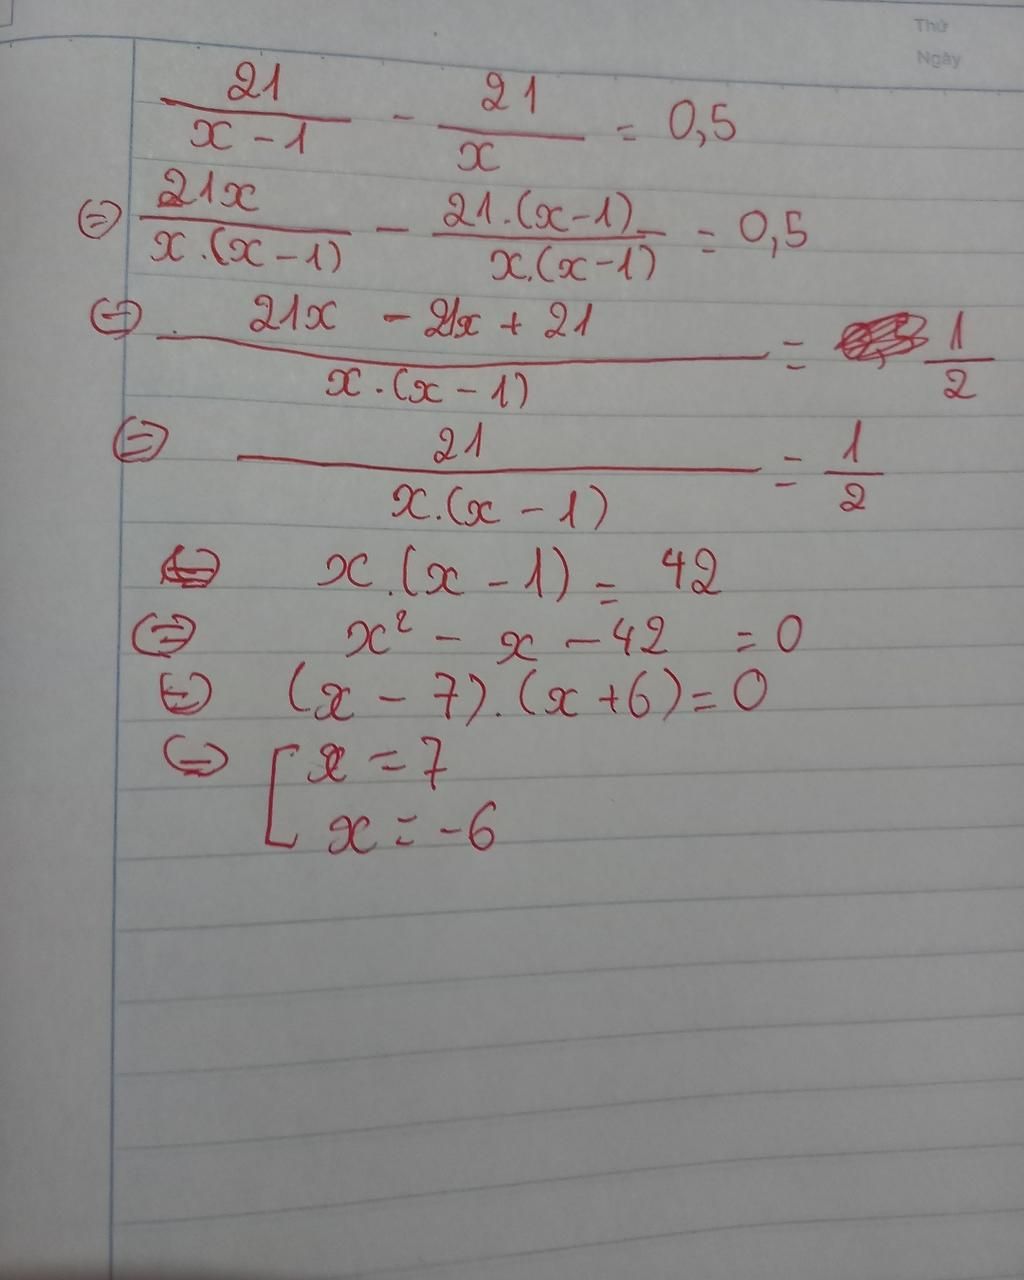 Thứ
Ngày
21/(x - 1) - 21/x = 0,5
⇔ 21x/(x.(x - 1)) - 21.(x - 1)/(x.(x - 1)) = 0,5
⇔ (21x - 21x + 21)/(x.(x - 1)) = 1/2
⇔ 21/(x.(x - 1)) = 1/2
⇔ x.(x - 1) = 42
⇔ x² - x - 42 = 0
⇔ (x - 7).(x + 6) = 0
⇔ [ x = 7
x = -6